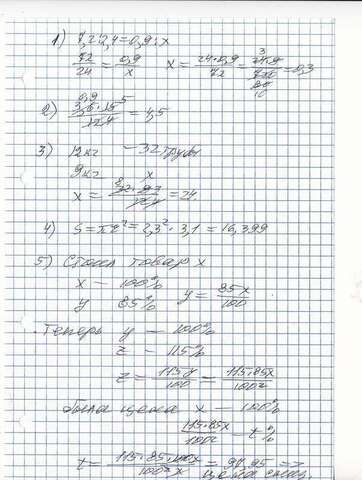 1) 7,2:2,4=0,9:x
72/24 = 0,9/x   x = 24·0,9/72 = = 0,3
2) 3,6·15/12 = 4,5
3) 12кг — 32 трубы
9кг   x
x = = 24
4) S=πr²=2,3²·3,1=16,399
5) Стоил товар x
x — 100%
y   85%   y = 85x/100
Теперь y — 100%
z — 115%
z = 115y/100 = 115·85x/100²
была цена x — 100%
115·85x/100² — t%
t = 115·85·100x/100²x = 97,75 =>
цена сниз.